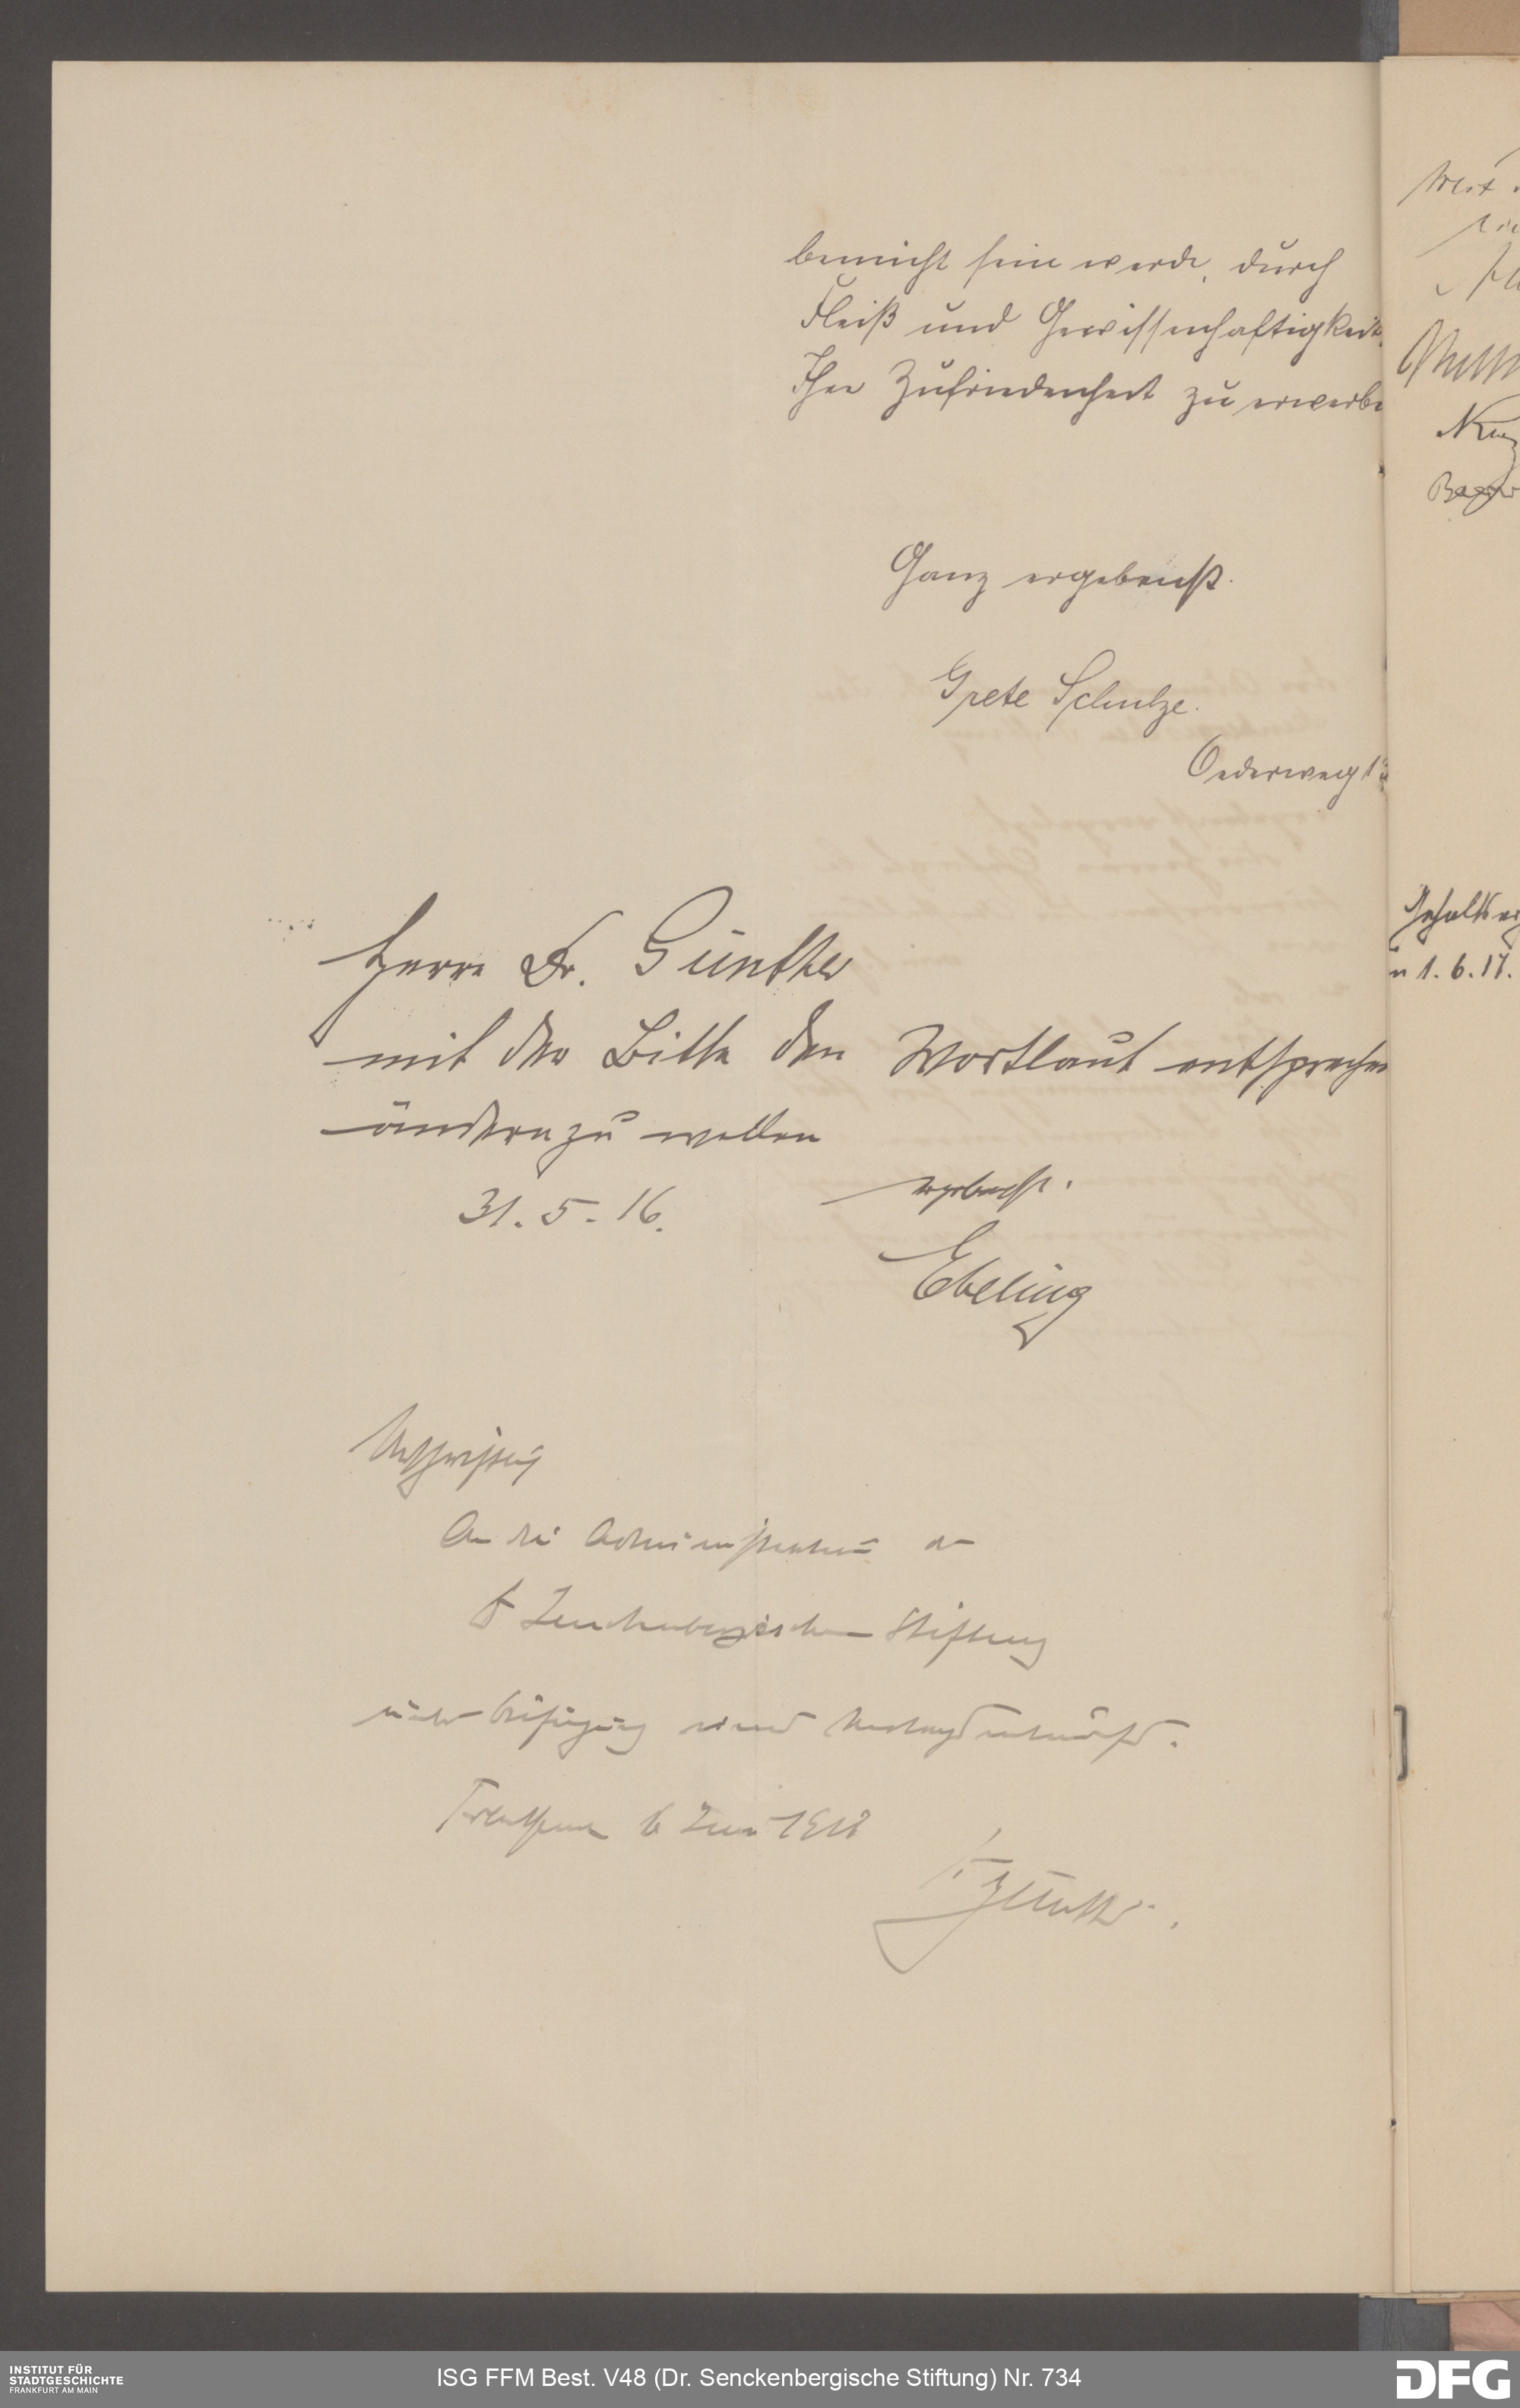 bemüht sein werde, durch
Fleiß und Gewissenhaftigkeit
Ihre Zufriedenheit zu erwerbe
Ganz ergebenst.
Grete Schulze.
Oederweg 1
Herrn Dr. Günther
mit der Bitte den Wortlaut entsprechen
ändern zu wollen
ergebenst.
31. 5. 16.
Ebeling
An die Administration der
Dr Senckenbergischen Stiftung
unter Beifügung eines Vertragsentwurfs.
6 Juni 191
Gehalts
1. 6. 17.
INSTITUT FÜR
STADTGESCHICHTE
FRANKFURT AM MAIN
ISG FFM Best. V48 (Dr. Senckenbergische Stiftung) Nr. 734
DFG